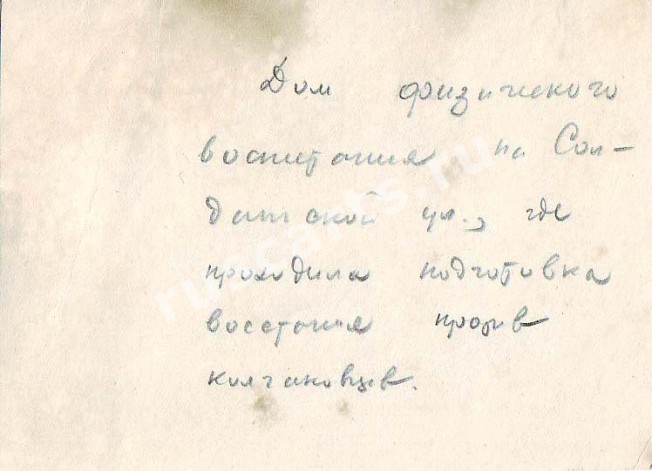 Дом физического
воспитания на Сол-
датской ул., где
проходила подготовка
восстания против
колчаковцев.